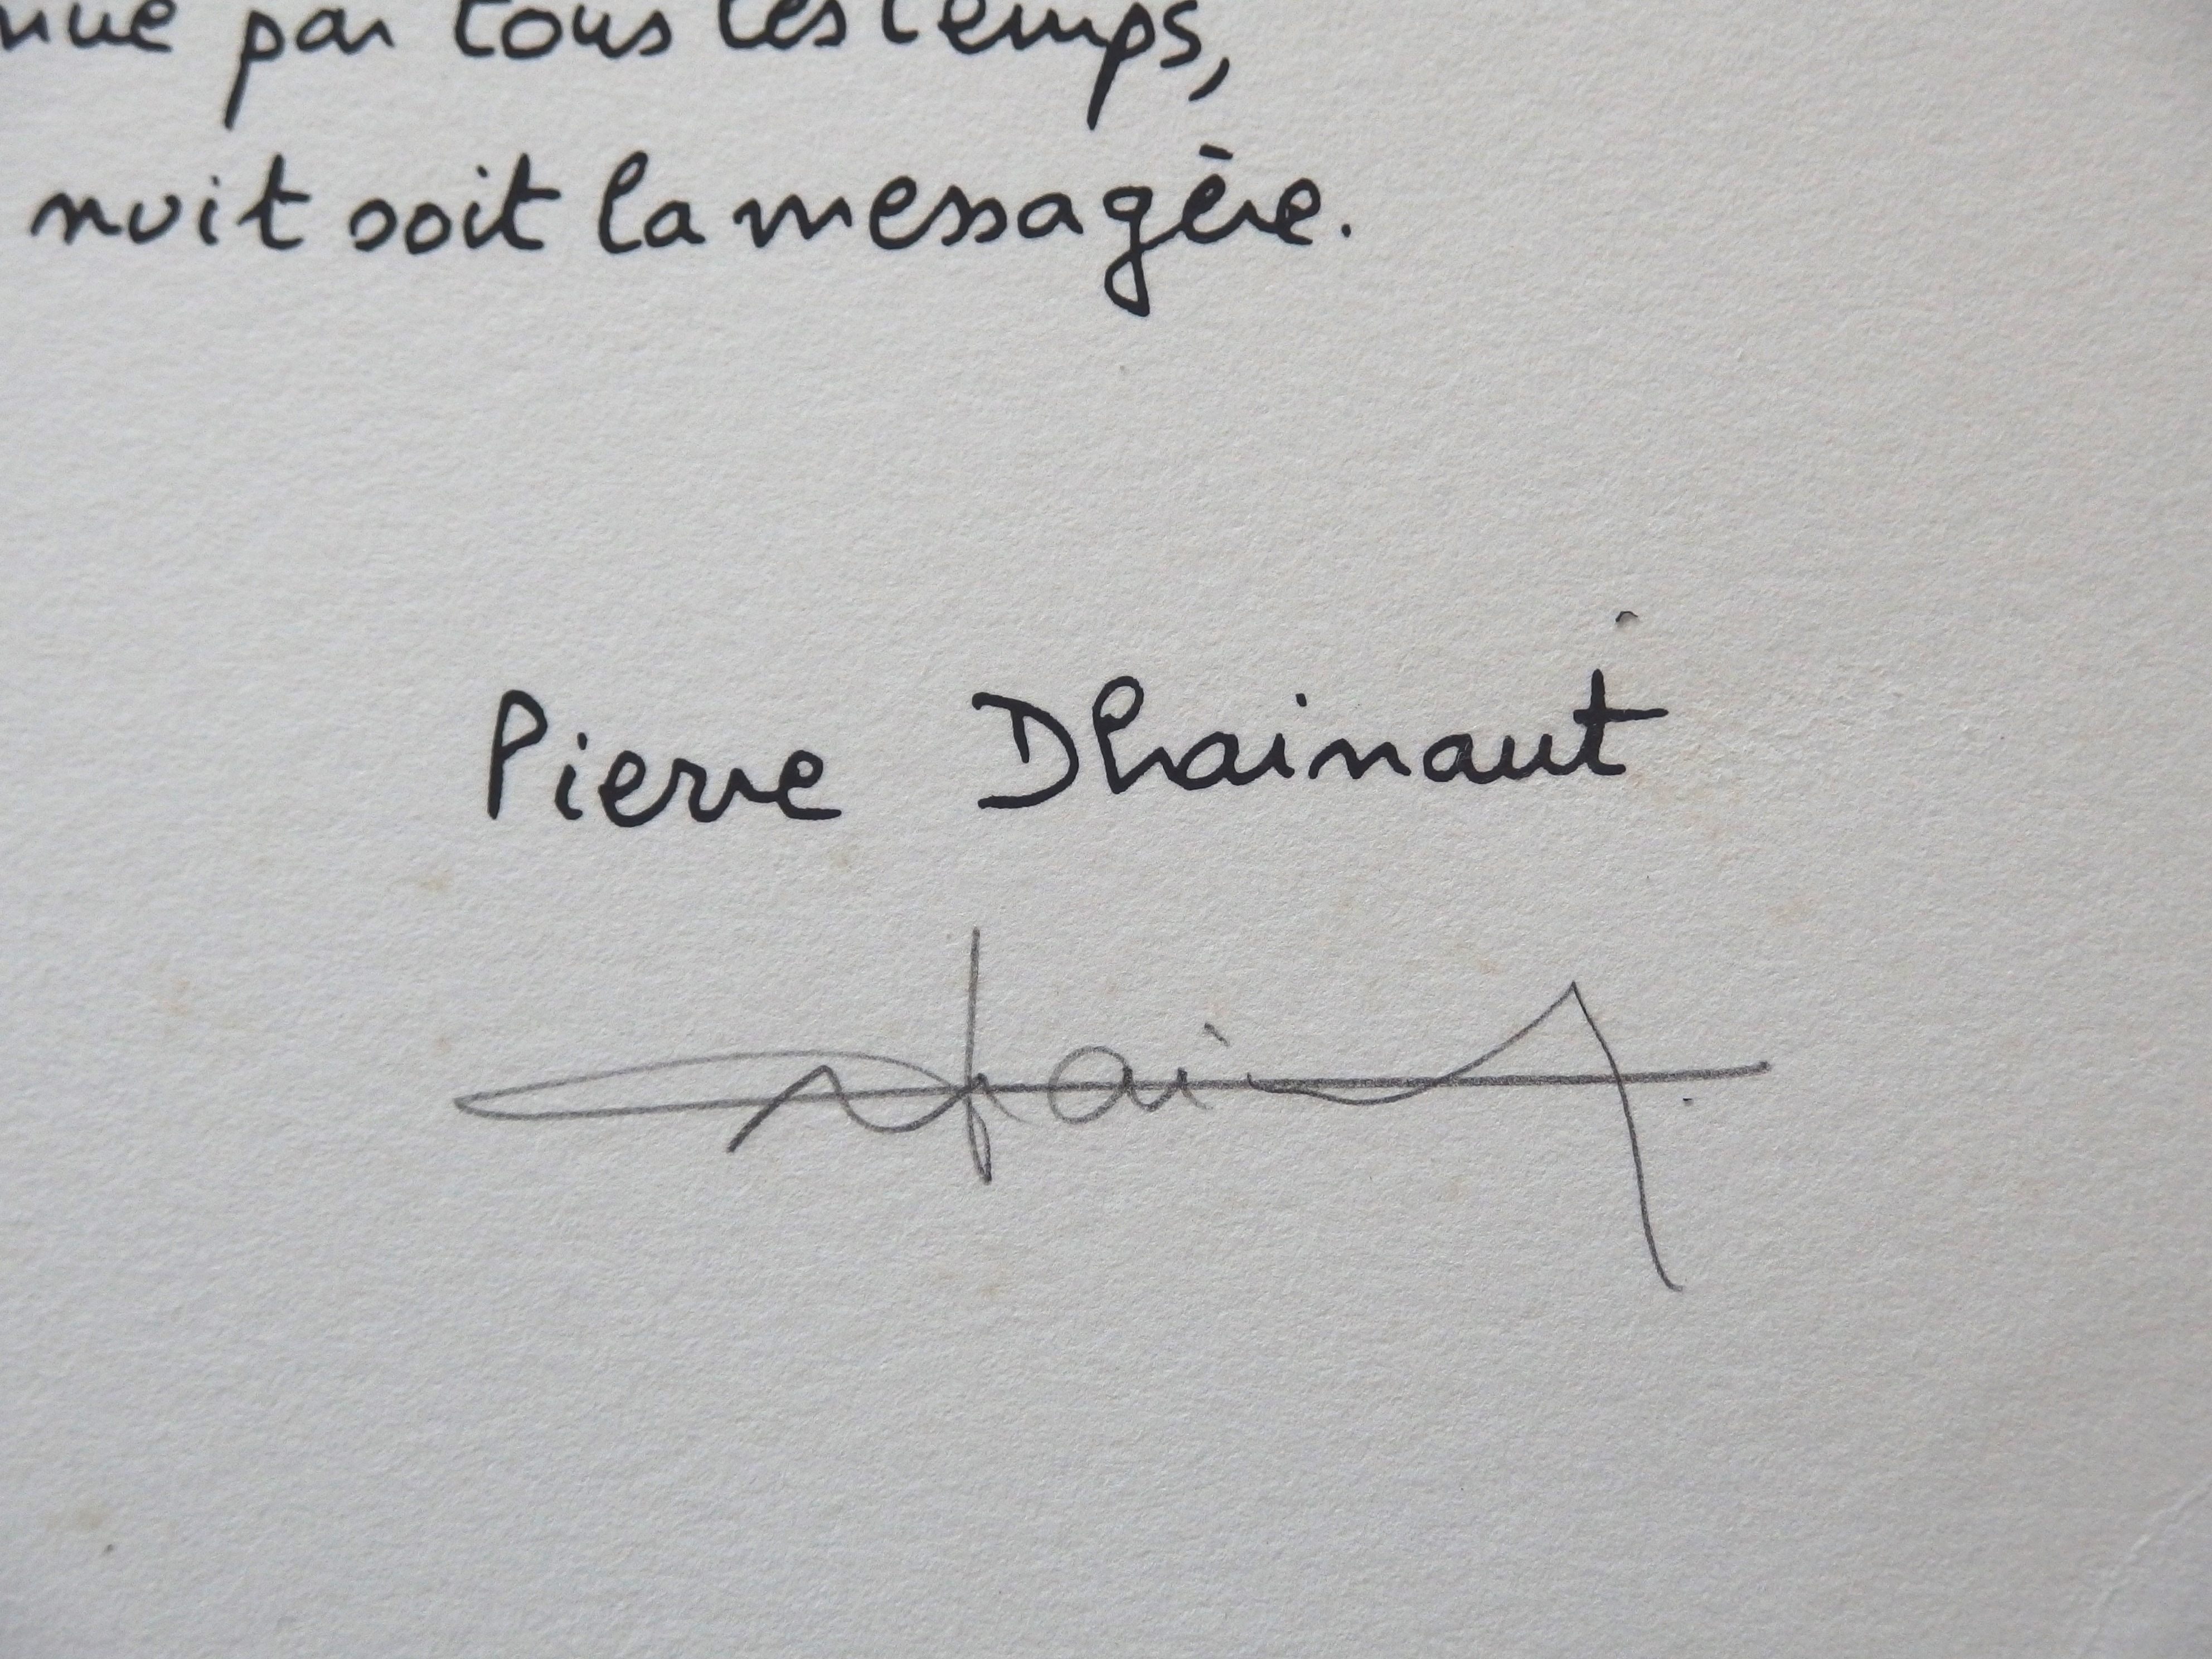 par tous les temps,
nuit soit la messagère.
Pierre Dhainaut